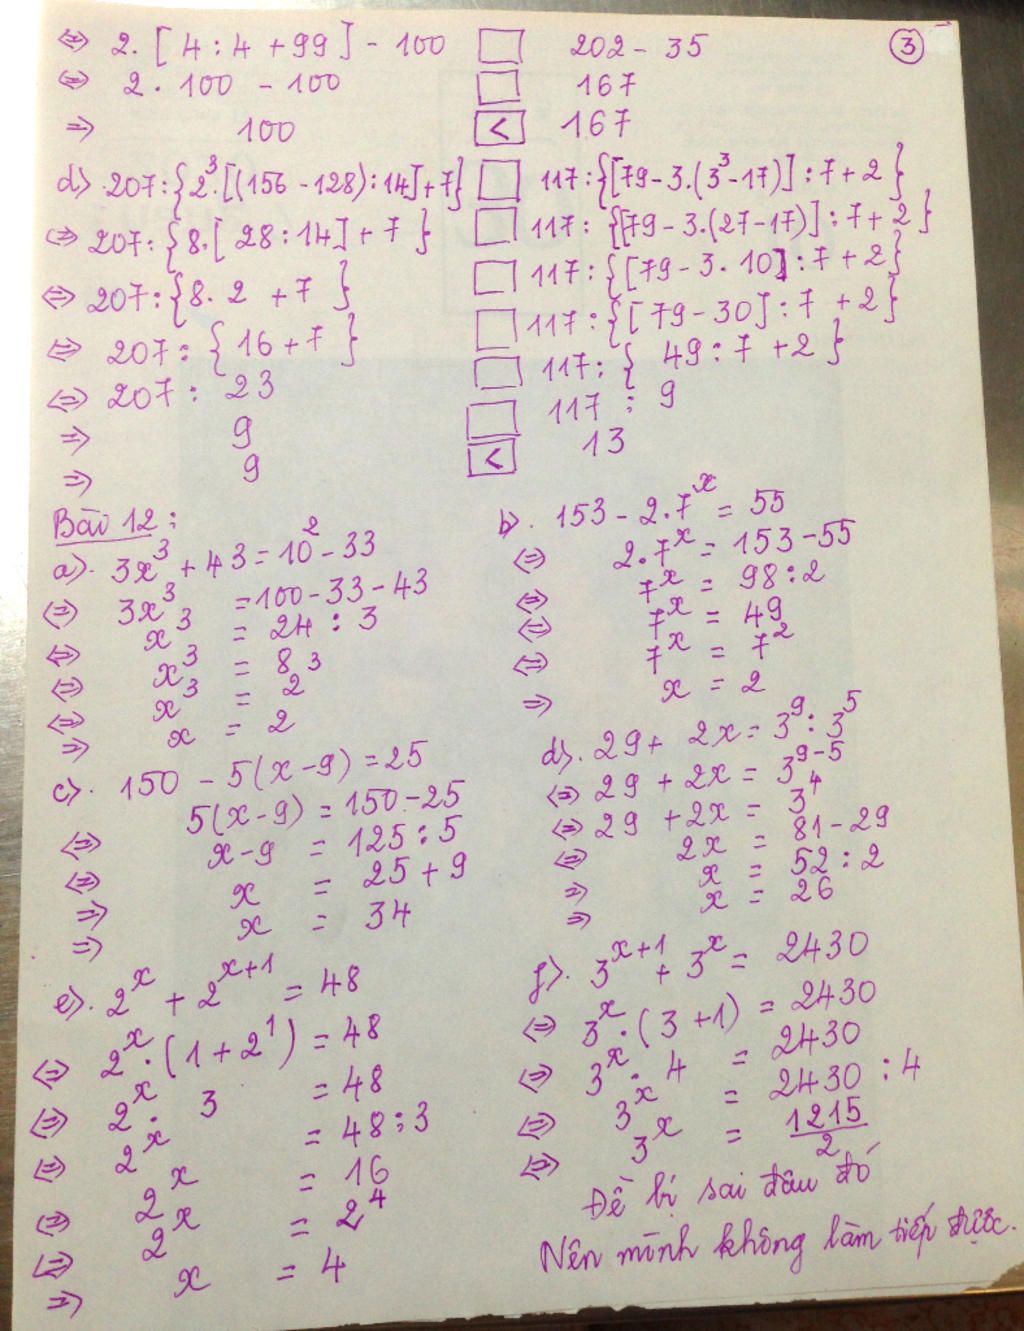 ③
⇔ 2.[4:4+99]-100 □ 202-35
⇔ 2.100-100 □ 167
⇒ 100 < 167
d) 207:{2³.[(156-128):14]+7} □ 117:{[79-3.(3³-17)]:7+2}
⇔ 207:{8.[28:14]+7} □ 117:{[79-3.(27-17)]:7+2}
⇔ 207:{8.2+7} □ 117:{[79-3.10]:7+2}
⇔ 207:{16+7} □ 117:{[79-30]:7+2}
⇔ 207:23 □ 117:{49:7+2}
⇒ 9 □ 117:9
⇒ 9 < 13
Bài 12:
a). 3x³+43=10²-33
⇔ 3x³=100-33-43
⇔ x³=24:3
⇔ x³=8
⇔ x³=2³
⇒ x=2
b). 153-2.7ˣ=55
⇔ 2.7ˣ=153-55
⇔ 7ˣ=98:2
⇔ 7ˣ=49
⇔ 7ˣ=7²
⇒ x=2
c). 150-5(x-9)=25
⇔ 5(x-9)=150-25
⇔ x-9=125:5
⇒ x=25+9
⇒ x=34
d). 29+2x=3⁹:3⁵
⇔ 29+2x=3⁹⁻⁵
⇔ 29+2x=3⁴
⇔ 2x=81-29
⇒ x=52:2
⇒ x=26
e). 2ˣ+2ˣ⁺¹=48
⇔ 2ˣ.(1+2¹)=48
⇔ 2ˣ.3=48
⇔ 2ˣ=48:3
⇔ 2ˣ=16
⇔ 2ˣ=2⁴
⇒ x=4
f). 3ˣ⁺¹+3ˣ=2430
⇔ 3ˣ.(3+1)=2430
⇔ 3ˣ.4=2430
⇔ 3ˣ=2430:4
⇔ 3ˣ=1215/2
Đề bị sai đâu đó
Nên mình không làm tiếp được.